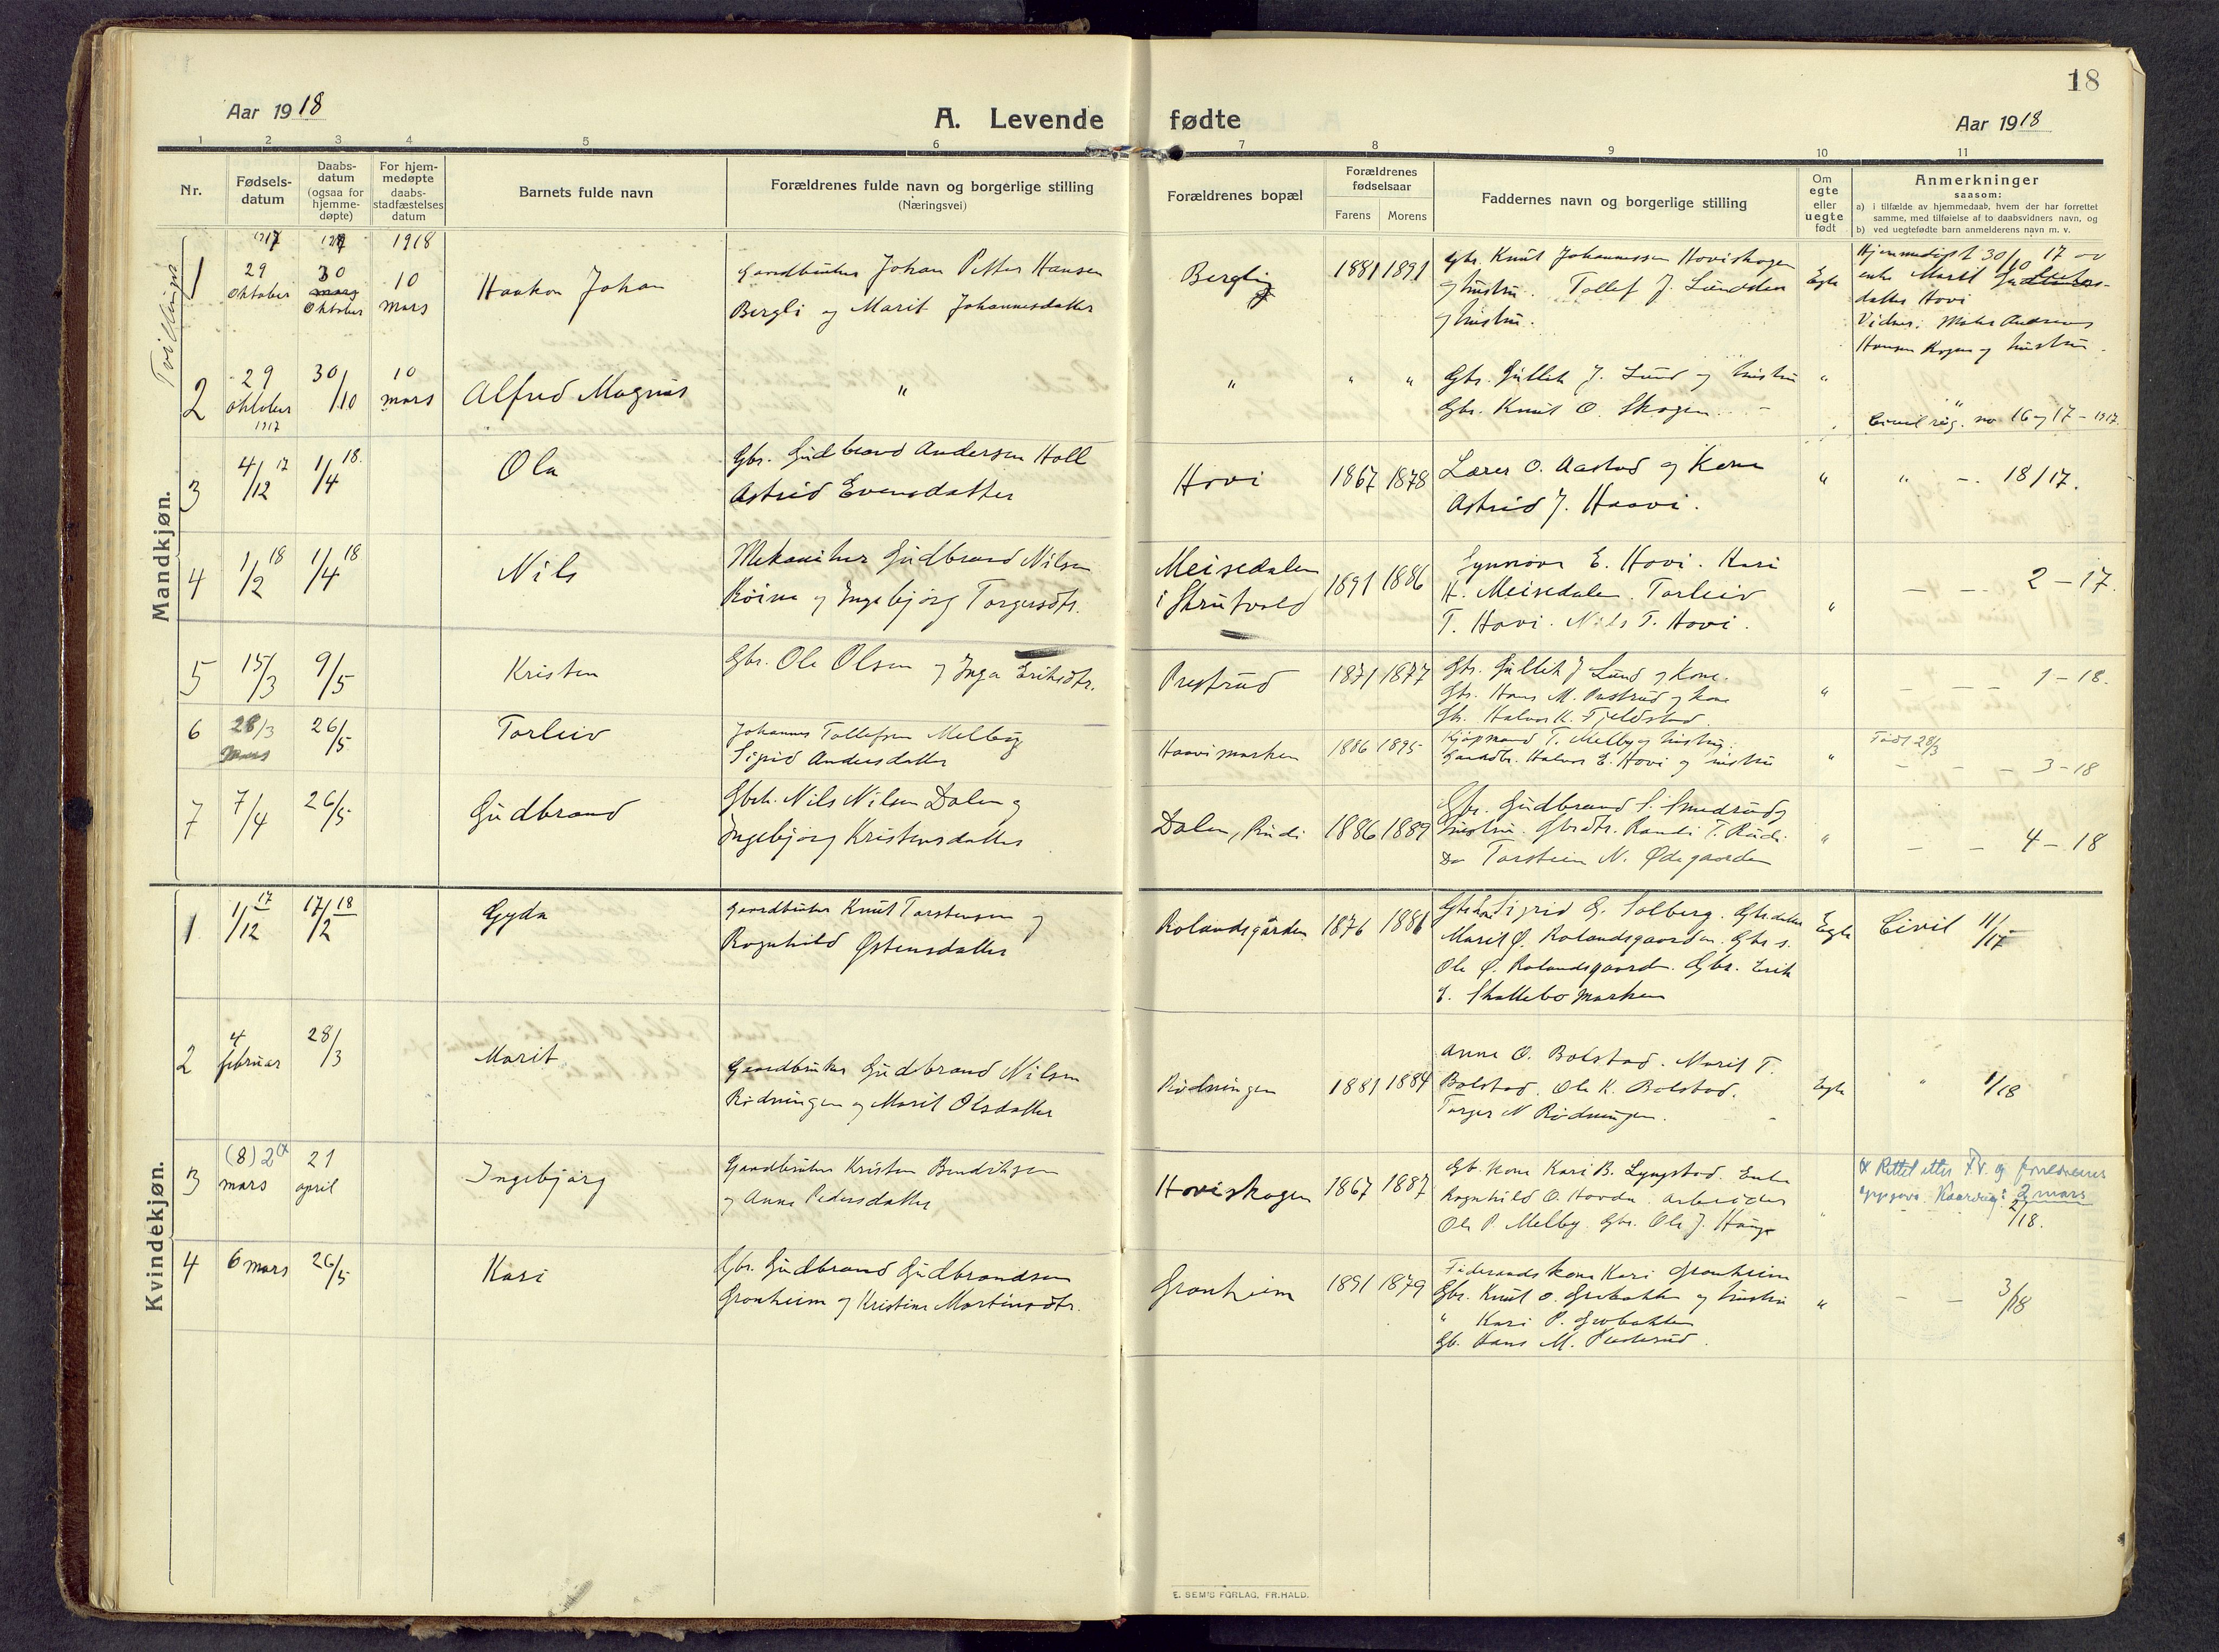 18
Aar 1918
A. Levende fødte
Aar 1918
1 2 3 4 5 6 7 8 9 10 11
Nr.
Fødsels-
datum
Daabs-
datum
(ogsaa for
hjemme-
døpte)
For hjem-
medøpte
daabs-
stadfæstelses
datum
Barnets fulde navn
Forældrenes fulde navn og borgerlige stilling
(Næringsvei)
Forældrenes bopæl
Forældrenes
fødselsaar
Farens Morens
Faddernes navn og borgerlige stilling
Om
egte
eller
uegte
født
Anmerkninger
saasom:
a) i tilfælde av hjemmedaab, hvem der har forrettet
samme, med tilføielse af to daabsvidners navn, og
b) ved uegtefødte barn anmelderens navn m. v.
Mandkjøn.
Tvillinger
1917 1917 1918
1
29
Oktober
30
mars
Oktober
10
mars
Haakon Johan
Gaardbruker Johan Petter Hansen
Bergli og Marit Johannesdatter
Bergli
1881 1891
Gbr. Knut Johannessen Hoviskogen
og hustru. Tollef J. Lundsten
og hustru.
Egte
Hjemmedøpt 30/10 17 av
enke Marit
datter Hovi
Vidner: Maler Andreas
Hansen og hustru.
2
29
oktober
1917
30/10
10
mars
Alfred Magnus
"
"
" "
Gbr. Gullik J. Lund og hustru
Gbr. Knut O. Skogen
"
"
Civil reg. no 16 og 17 - 1917.
3
4/12 17
1/4 18.
Ola
Gbr. Gudbrand Andersen Holl
Astrid Evensdatter
Hovi
1867 1878
Lærer O. Aastad og Kone
Astrid J. Haavi.
"
" - 18/17.
4
1/2 18
1/4 18
Nils
Mekaniker Gudbrand Nilsen
Røine og Ingebjørg Torgersdtr.
Meisedalen
i Skrutvold
1891 1886
Synnøve E. Hovi. Kari
H. Meisedalen. Torleiv
T. Hovi. Nils T. Hovi.
"
- - 2 - 17.
5
15/3
9/5
Kristen
Gbr. Ole Olsen og Inga Eriksdtr.
Prestrud
1871 1877
Gbr. Gullik J Lund og Kone.
Gbr. Hans M. Prestrud og kone
Gbr. Halvor K. Fjeldstad.
"
- - - 1 - 18.
6
28/3
mars
26/5
Torleiv
Johannes Tollefsen Melby
Sigrid Andersdatter
Haavimarken
1886 1895
Kjøpmand T. Melby og hustru.
Gaardbr. Halvor E. Hovi og hustru
"
Født 28/3
- - - 3 - 18
7
7/4
26/5
Gudbrand
Gbr. Nils Nilsen Dalen og
Ingebjørg Kristensdatter
Dalen, Rudi
1886 1889
Gbr. Gudbrand S. Smedrud og
hustru. Gbrdtr. Randi T. Rudi.
Do Torstein N. Ødegaarden
"
- - 4 - 18
Kvindekjøn.
1
1/12 17
17/2 18
Gyda
Gaardbruker Knut Torstensen og
Ragnhild Østensdatter
Rolandsgården
1876 1881
Sigrid G. Solberg. Gbr.datter
Marit Ø. Rolandsgaarden. Gbr s.
Ole Ø. Rolandsgaarden. Gbr. Erik
E. Skattebo marken
Egte
Civil 11/17
2
4
februar
28/3
Marit
Gaardbruker Gudbrand Nilsen
Rødningen og Marit Olsdatter
Rødningen
1881 1884
Anne O. Bolstad. Marit T.
Bolstad. Ole K. Bolstad.
Torger N Rødningen.
Egte
" 1/18
3
(8) 2 x
mars
21
april
Ingebjørg
Gaardbruker Kristen Bendiksen
og Anne Pedersdatter
Hoviskogen
1867 1887
Gb. kone Kari B. Lyngstad. Enke
Ragnhild O. Hovda. Arbeider
Ole P. Melby. Gbr. Ole J. Hauge
"
x Rettet etter F.v. og foreldrenes
oppgave. 2 mars
2/18.
4
6 mars
26/5
Kari
Gbr. Gudbrand Gudbrandsen
Granheim og Kristine Martinsdtr.
Granheim
1891 1879
Føderaadskone Kari Granheim
Gbr. Knut O. Grobakken og hustru
" Kari P. Grobakken
Gb. Hans M.
"
- - 3/18
E. SEM'S FORLAG, FR.HALD.